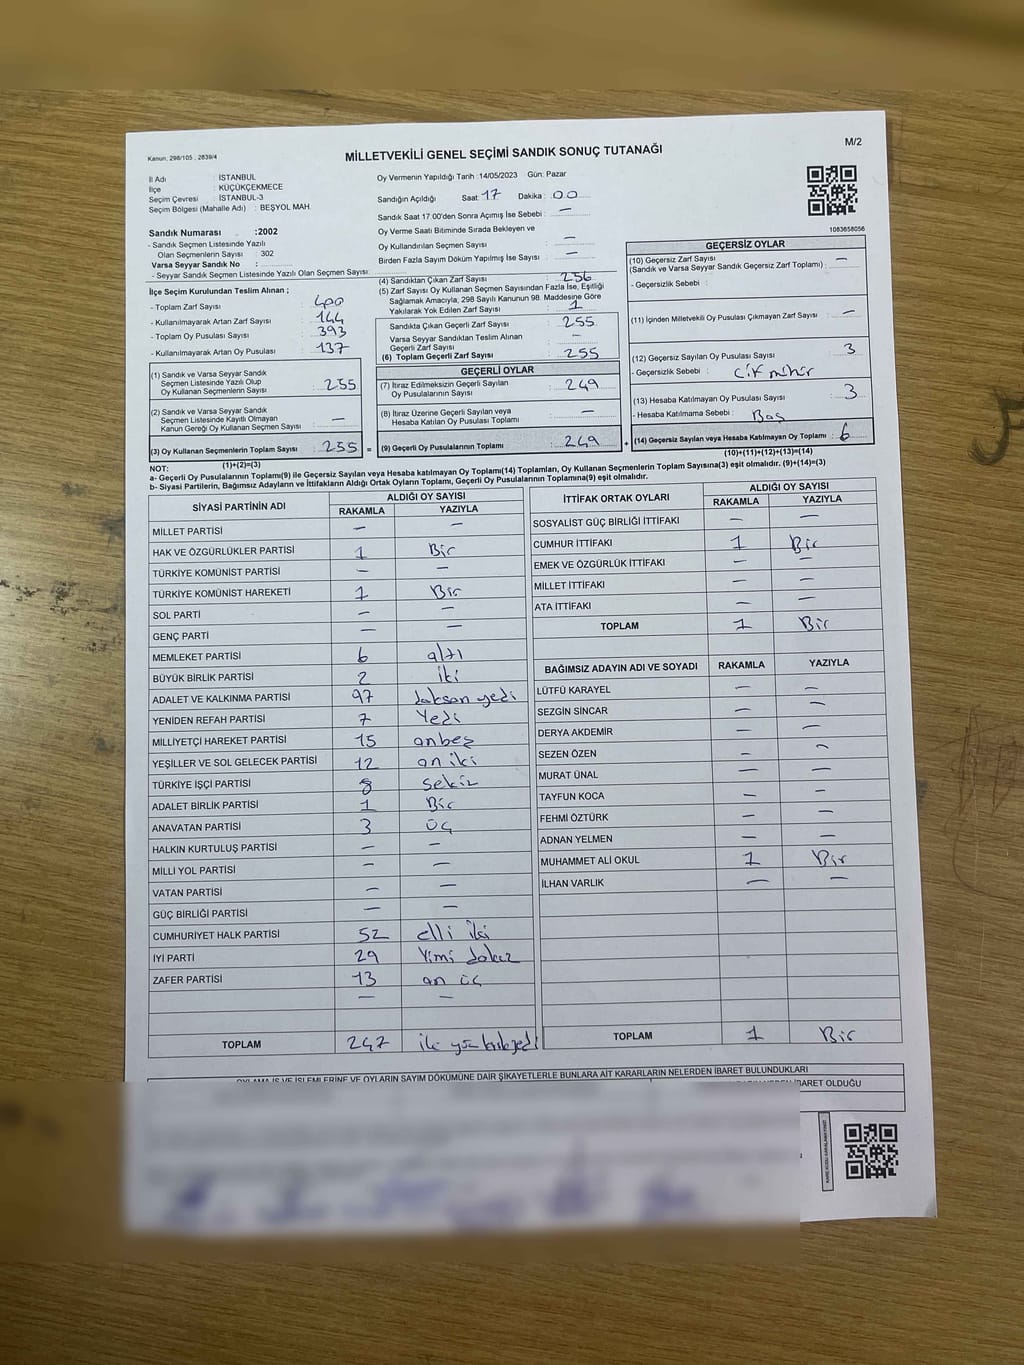 Kanun, 298/105 , 2839/4
MİLLETVEKİLİ GENEL SEÇİMİ SANDIK SONUÇ TUTANAĞI
M/2
İl Adı : İSTANBUL
İlçe : KÜÇÜKÇEKMECE
Seçim Çevresi : İSTANBUL-3
Seçim Bölgesi (Mahalle Adı) : BEŞYOL MAH.
Oy Vermenin Yapıldığı Tarih :14/05/2023 Gün: Pazar
Sandığın Açıldığı Saat 17 Dakika : 00
Sandık Saat 17:00'den Sonra Açımış İse Sebebi : —
Oy Verme Saati Bitiminde Sırada Bekleyen ve
Oy Kullandırılan Seçmen Sayısı : —
Birden Fazla Sayım Döküm Yapılmış İse Sayısı : —
1083658056
Sandık Numarası :2002
- Sandık Seçmen Listesinde Yazılı
Olan Seçmenlerin Sayısı : 302
Varsa Seyyar Sandık No :
- Seyyar Sandık Seçmen Listesinde Yazılı Olan Seçmen Sayısı:
İlçe Seçim Kurulundan Teslim Alınan ;
- Toplam Zarf Sayısı : 400
- Kullanılmayarak Artan Zarf Sayısı : 144
- Toplam Oy Pusulası Sayısı : 393
- Kullanılmayarak Artan Oy Pusulası : 137
(1) Sandık ve Varsa Seyyar Sandık
Seçmen Listesinde Yazılı Olup
Oy Kullanan Seçmenlerin Sayısı : 255
(2) Sandık ve Varsa Seyyar Sandık
Seçmen Listesinde Kayıtlı Olmayan
Kanun Gereği Oy Kullanan Seçmen Sayısı : —
(3) Oy Kullanan Seçmenlerin Toplam Sayısı : 255 =
(1)+(2)=(3)
(4) Sandıktan Çıkan Zarf Sayısı : 256
(5) Zarf Sayısı Oy Kullanan Seçmen Sayısından Fazla İse, Eşitliği
Sağlamak Amacıyla, 298 Sayılı Kanunun 98. Maddesine Göre
Yakılarak Yok Edilen Zarf Sayısı : 1
Sandıkta Çıkan Geçerli Zarf Sayısı : 255
Varsa Seyyar Sandıktan Teslim Alınan
Geçerli Zarf Sayısı : —
(6) Toplam Geçerli Zarf Sayısı : 255
GEÇERLİ OYLAR
(7) İtiraz Edilmeksizin Geçerli Sayılan
Oy Pusulasının Sayısı : 249
(8) İtiraz Üzerine Geçerli Sayılan veya
Hesaba Katılan Oy Pusulası Toplamı : —
(9) Geçerli Oy Pusulalarının Toplamı : 249 +
GEÇERSİZ OYLAR
(10) Geçersiz Zarf Sayısı
(Sandık ve Varsa Seyyar Sandık Geçersiz Zarf Toplamı) : —
- Geçersizlik Sebebi :
(11) İçinden Milletvekili Oy Pusulası Çıkmayan Zarf Sayısı : —
(12) Geçersiz Sayılan Oy Pusulası Sayısı : 3
- Geçersizlik Sebebi : Çift mühür
(13) Hesaba Katılmayan Oy Pusulası Sayısı : 3
- Hesaba Katılmama Sebebi : Boş
(14) Geçersiz Sayılan veya Hesaba Katılmayan Oy Toplamı : 6
(10)+(11)+(12)+(13)=(14)
NOT:
a- Geçerli Oy Pusulalarının Toplamı(9) ile Geçersiz Sayılan veya Hesaba katılmayan Oy Toplamı(14) Toplamları, Oy Kullanan Seçmenlerin Toplam Sayısına(3) eşit olmalıdır. (9)+(14)=(3)
b- Siyasi Partilerin, Bağımsız Adayların ve İttifakların Aldığı Ortak Oyların Toplamı, Geçerli Oy Pusulalarının Toplamına(9) eşit olmalıdır.
SİYASİ PARTİNİN ADI ALDIĞI OY SAYISI
RAKAMLA YAZIYLA
MİLLET PARTİSİ — —
HAK VE ÖZGÜRLÜKLER PARTİSİ 1 Bir
TÜRKİYE KOMÜNİST PARTİSİ — —
TÜRKİYE KOMÜNİST HAREKETİ 1 Bir
SOL PARTİ — —
GENÇ PARTİ — —
MEMLEKET PARTİSİ 6 altı
BÜYÜK BİRLİK PARTİSİ 2 iki
ADALET VE KALKINMA PARTİSİ 97 doksan yedi
YENİDEN REFAH PARTİSİ 7 Yedi
MİLLİYETÇİ HAREKET PARTİSİ 15 onbeş
YEŞİLLER VE SOL GELECEK PARTİSİ 12 on iki
TÜRKİYE İŞÇİ PARTİSİ 8 sekiz
ADALET BİRLİK PARTİSİ 1 Bir
ANAVATAN PARTİSİ 3 üç
HALKIN KURTULUŞ PARTİSİ — —
MİLLİ YOL PARTİSİ — —
VATAN PARTİSİ — —
GÜÇ BİRLİĞİ PARTİSİ — —
CUMHURİYET HALK PARTİSİ 52 elli iki
İYİ PARTİ 29 Yirmi dokuz
ZAFER PARTİSİ 13 on üç
— —
TOPLAM 247 iki yüz kırk yedi
İTTİFAK ORTAK OYLARI ALDIĞI OY SAYISI
RAKAMLA YAZIYLA
SOSYALİST GÜÇ BİRLİĞİ İTTİFAKI — —
CUMHUR İTTİFAKI 1 Bir
EMEK VE ÖZGÜRLÜK İTTİFAKI — —
MİLLET İTTİFAKI — —
ATA İTTİFAKI — —
TOPLAM 1 Bir
BAĞIMSIZ ADAYIN ADI VE SOYADI RAKAMLA YAZIYLA
LÜTFÜ KARAYEL — —
SEZGİN SİNCAR — —
DERYA AKDEMİR — —
SEZEN ÖZEN — —
MURAT ÜNAL — —
TAYFUN KOCA — —
FEHMİ ÖZTÜRK — —
ADNAN YELMEN — —
MUHAMMET ALİ OKUL 1 Bir
İLHAN VARLIK — —
TOPLAM 1 Bir
OYLAMA İŞ VE İŞLEMLERİNE VE OYLARIN SAYIM DÖKÜMÜNE DAİR ŞİKAYETLERLE BUNLARA AİT KARARLARIN NELERDEN İBARET BULUNDUKLARI
İBARET OLDUĞU